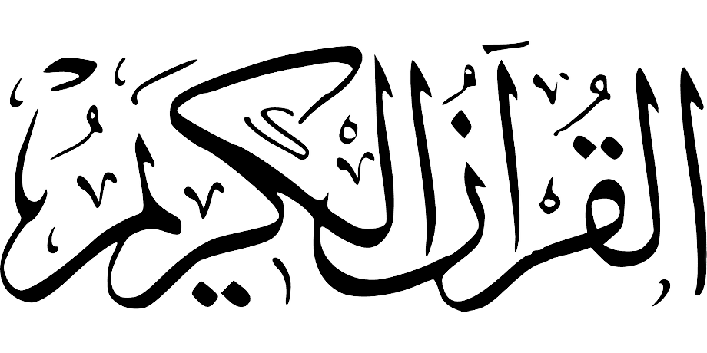 القُرْآنُ الْكَرِيمُ